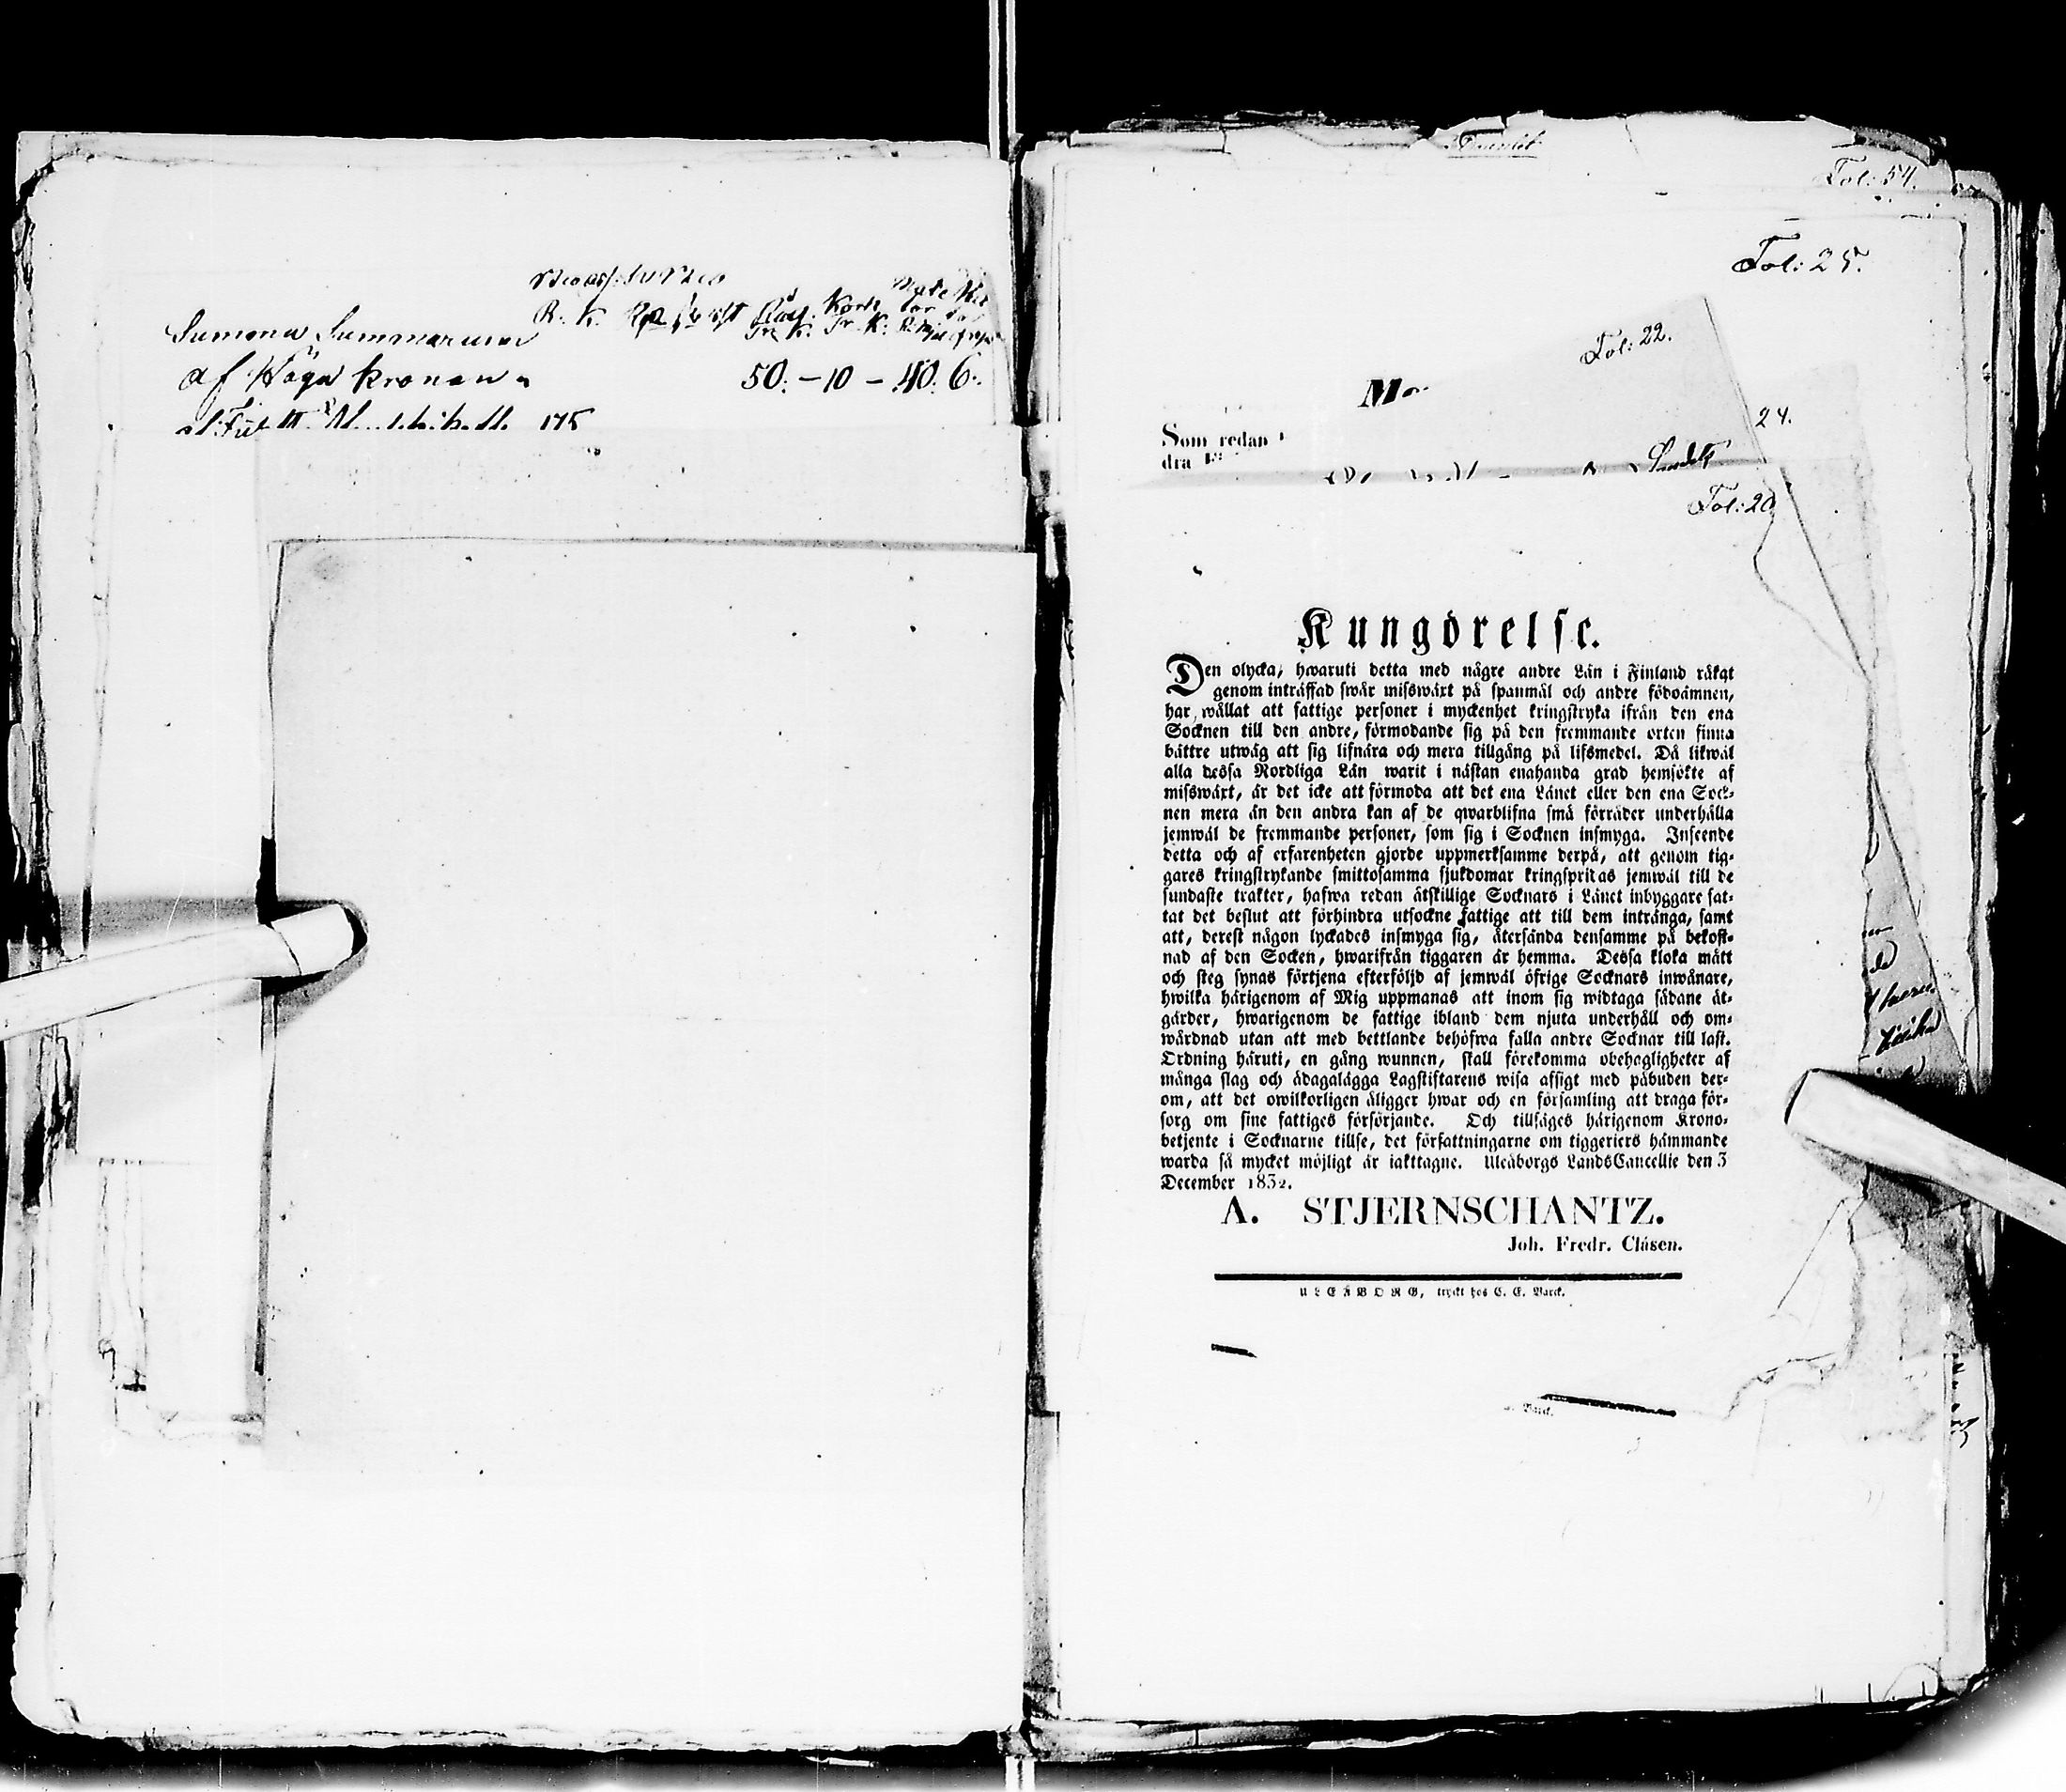 R. K.
Summa Summarum
af Höga kronan
50. – 10 – 40. 6.
175
Fol: 54.
Fol: 25.
Fol: 22.
24.
Som redan
dra
Fol: 20
Kungörelse.
Den olycka, hwaruti detta med någre andre Län i Finland råkat
genom inträffad swår missväxt på spanmål och andre födoämnen,
har wållat att fattige personer i myckenhet kringstryka ifrån den ena
Socknen till den andre, förmodande sig på den fremmande orten finna
bättre utwäg att sig lifnära och mera tillgång på lifsmedel. Då likwäl
alla dessa Nordliga Län warit i nästan enahanda grad hemsökte af
misswäxt, är det icke att förmoda att det ena Länet eller den ena Sock-
nen mera än den andra kan af de qwarblifna små förråder underhålla
jemwäl de fremmande personer, som sig i Socknen insmyga. Inseende
detta och af erfarenheten gjorde uppmerksamme derpå, att genom tig-
gares kringstrykande smittosamma sjukdomar kringspridas jemwäl till de
sundaste trakter, hafwa redan åtskillige Socknars i Länet inbyggare fat-
tat det beslut att förhindra utsockne fattige att till dem intränga, samt
att, derest någon lyckades insmyga sig, återsända densamme på bekost-
nad af den Socken, hwarifrån tiggaren är hemma. Dessa kloka mått
och steg synas förtjena efterföljd af jemwäl öfrige Socknars inwånare,
hwilka härigenom af Mig uppmanas att inom sig widtaga sådane åt-
gärder, hwarigenom de fattige ibland dem njuta underhåll och om-
wårdnad utan att med bettlande behöfwa falla andre Socknar till last.
Ordning häruti, en gång wunnen, skall förekomma obehagligheter af
många slag och ådagalägga Lagstiftarens wisa afsigt med påbuden der-
om, att det owilkorligen åligger hwar och en församling att draga för-
sorg om sine fattiges försörjande. Och tillsäges härigenom Krono-
betjente i Socknarne tillse, det författningarne om tiggeriers hämmande
warda så mycket möjligt är iakttagne. Uleåborgs LandsCancellie den 3
December 1832.
A. STJERNSCHANTZ.
Joh. Fredr. Clåsen.
ULEÅBORG, tryckt hos C. E. Barck.
Barck.